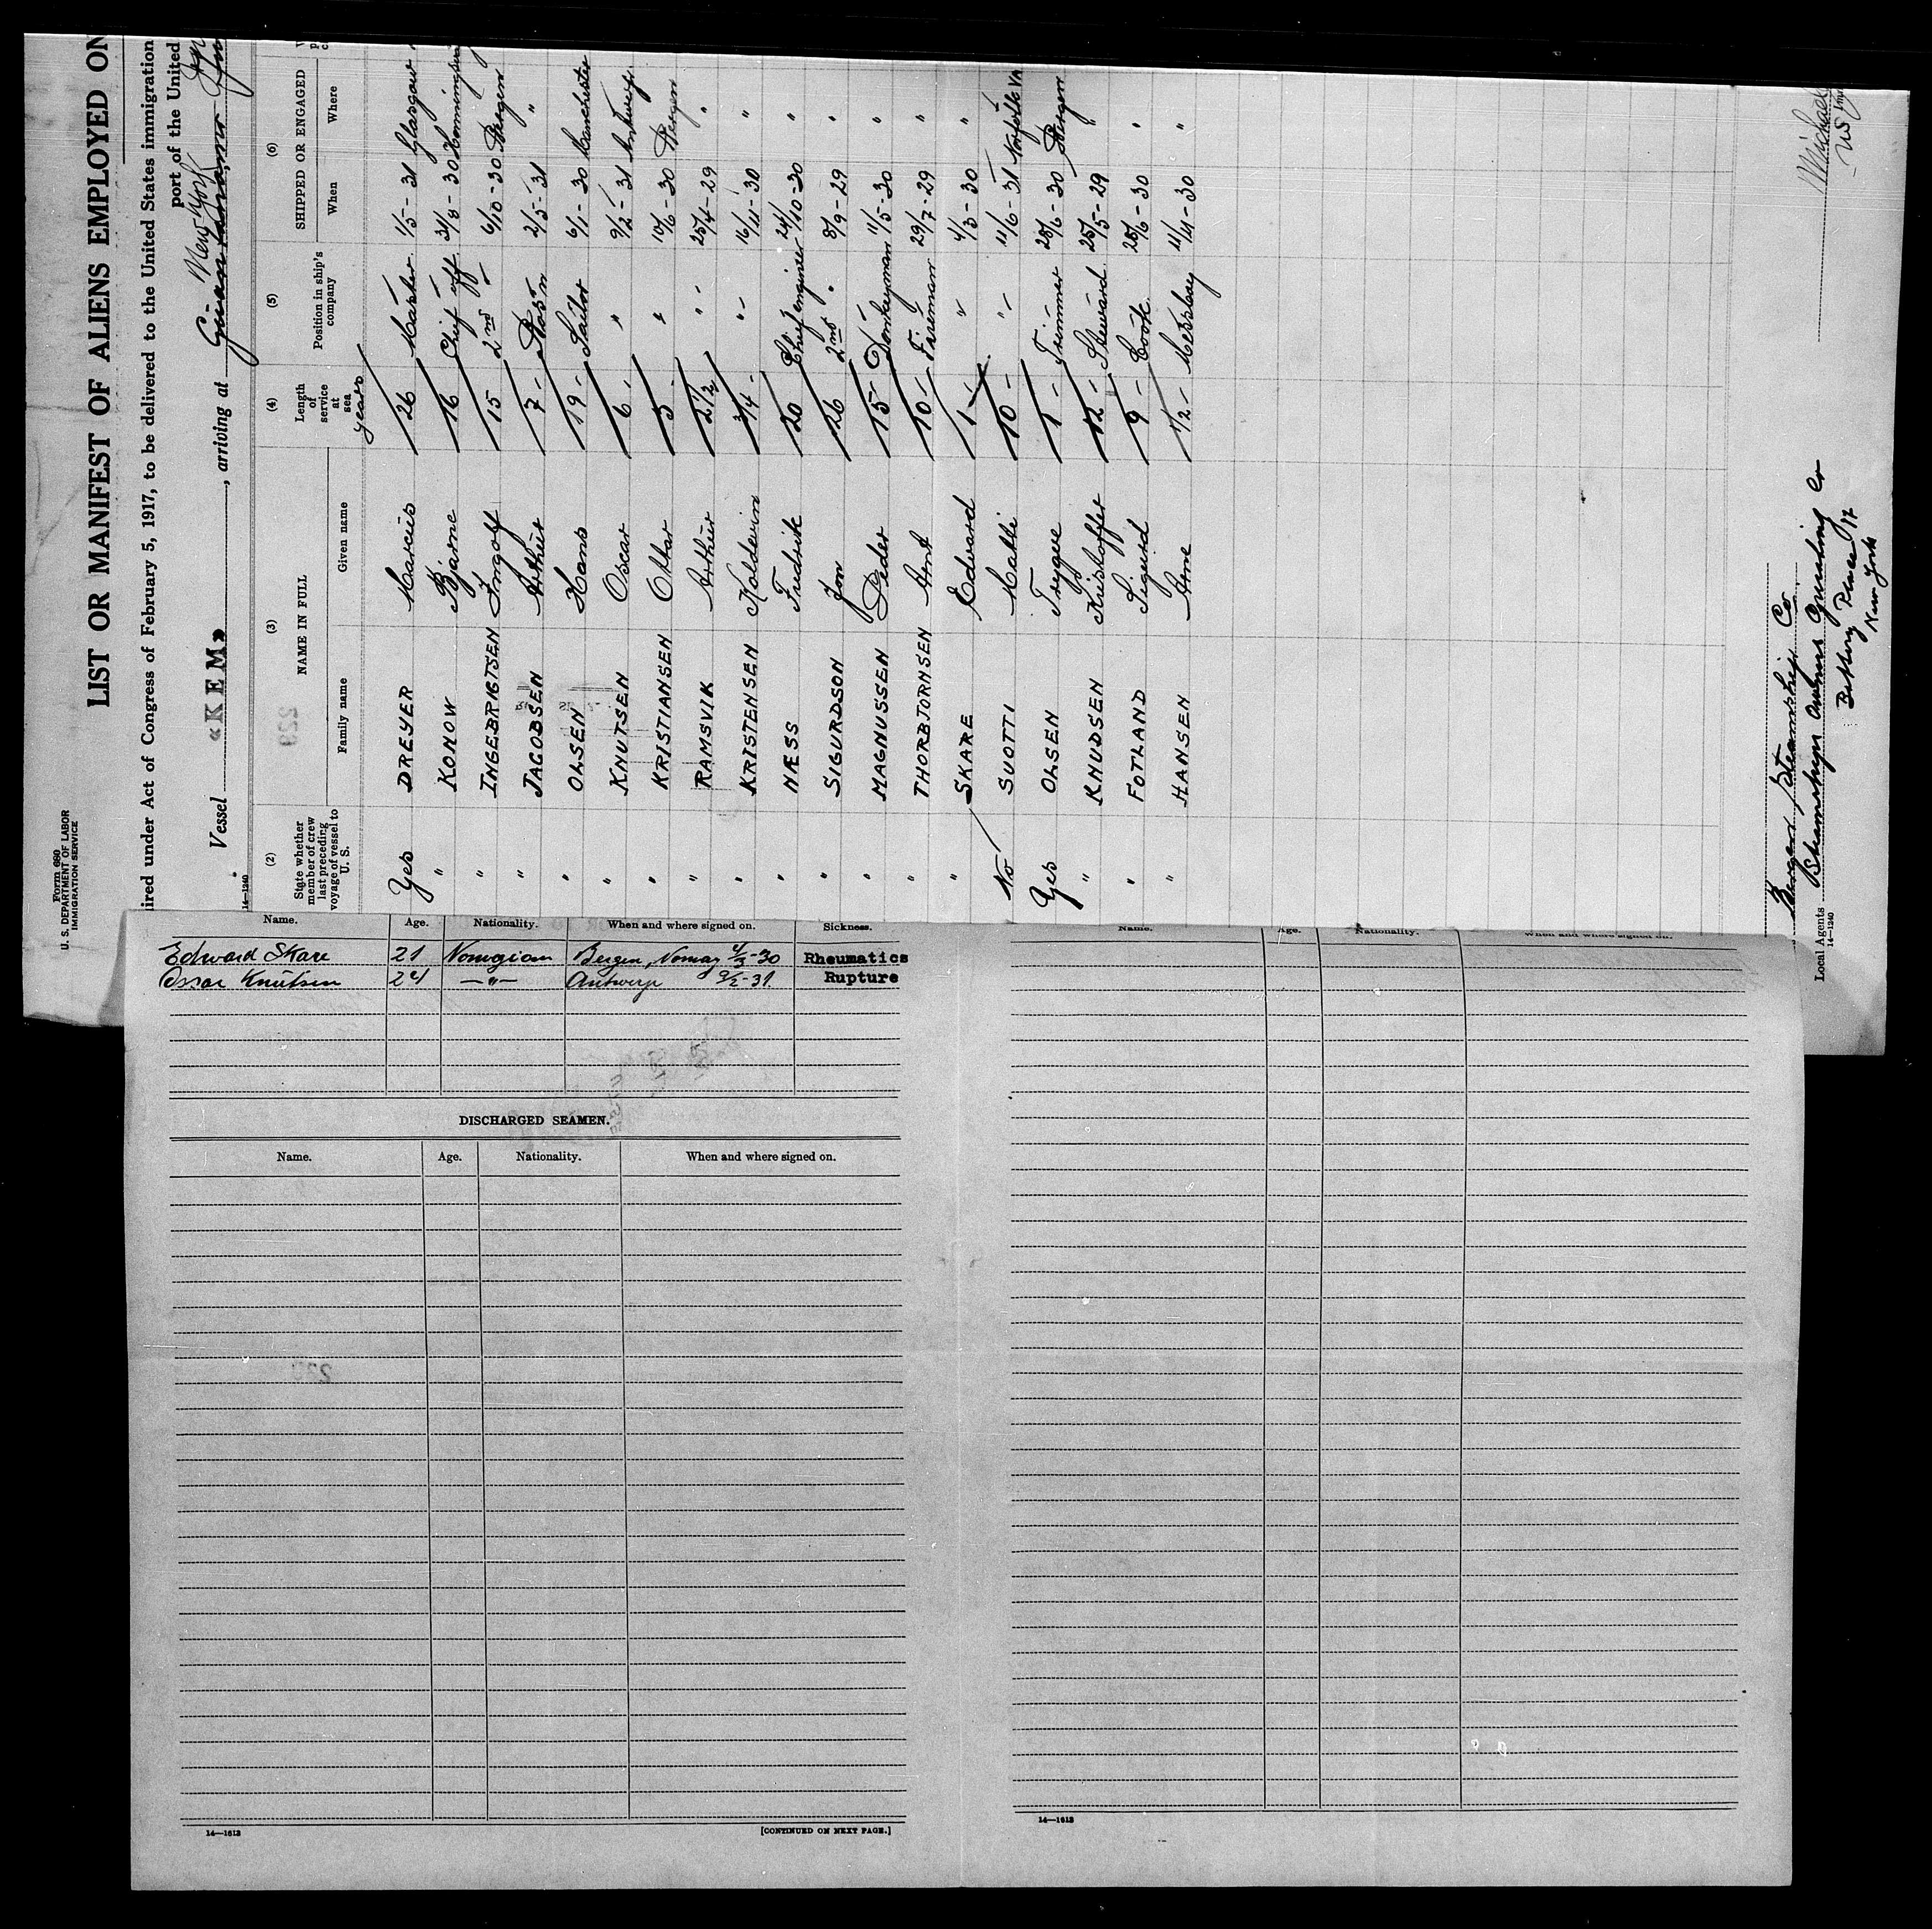 Form 680
U. S. DEPARTMENT OF LABOR
IMMIGRATION SERVICE
LIST OR MANIFEST OF ALIENS EMPLOYED ON
ired under Act of Congress of February 5, 1917, to be delivered to the United States immigration
port of the United
Vessel «KEM», arriving at New York
14—1240
(2) (3) (4) (5) (6)
State whether member of crew last preceding voyage of vessel to U. S. NAME IN FULL Length of service at sea Position in ship's company SHIPPED OR ENGAGED
Family name Given name years When Where
229
Yes DREYER Marcus 26 Master 1/5 - 31 Glasgow
" KONOW Bjarne 16 Chief off 31/8 - 30
" INGEBRIGTSEN Ingolf 15 2nd " 6/10 - 30 Bergen
" JACOBSEN Arthur 7 - Bosn 2/5 - 31 "
" OLSEN Hans 19 - Sailor 6/1 - 30 Manchester
" KNUTSEN Oscar 6 - " 9/2 - 31 Antwerp
" KRISTIANSEN Ottar 5 - " 10/6 - 30 Bergen
" RAMSVIK Arthur 2 1/2 - " 25/4 - 29 "
" KRISTENSEN Haldevin 3/4 - " 16/11 - 30 "
" NÆSS Fredrik 20 Chief engineer 24/10 - 30 "
" SIGURDSON Jon 26 2nd " 8/9 - 29 "
" MAGNUSSEN Peder 15 - Donkeyman 11/5 - 30 "
" THORBJORNSEN Arnt 10 - Fireman 29/7 - 29 "
" SKARE Edvard 1 - " 4/3 - 30 "
No SUOTTI Matti 10 - " 11/6 - 31 Norfolk VA
Yes OLSEN Trygve 1 - Trimmer 28/6 - 30 Bergen
" KNUDSEN Kristoffer 12 - Steward 25/5 - 29 "
" FOTLAND Sigurd 9 - Cook 28/6 - 30 "
" HANSEN Arne 1/2 - Messboy 11/4 - 30 "
Bergen Steamship Co
Local Agents
14—1240
Battery Place 17
New York
Michael
US
Name. Age. Nationality. When and where signed on. Sickness.
Edward Skare 21 Norwegian Bergen, Norway 4/3-30 Rheumatics
Oscar Knutsen 24 —"— Antwerp 9/2-31 Rupture
DISCHARGED SEAMEN.
Name. Age. Nationality. When and where signed on.
14—1613
[CONTINUED ON NEXT PAGE.]
Name. Age. Nationality. When and where signed on.
14—1613